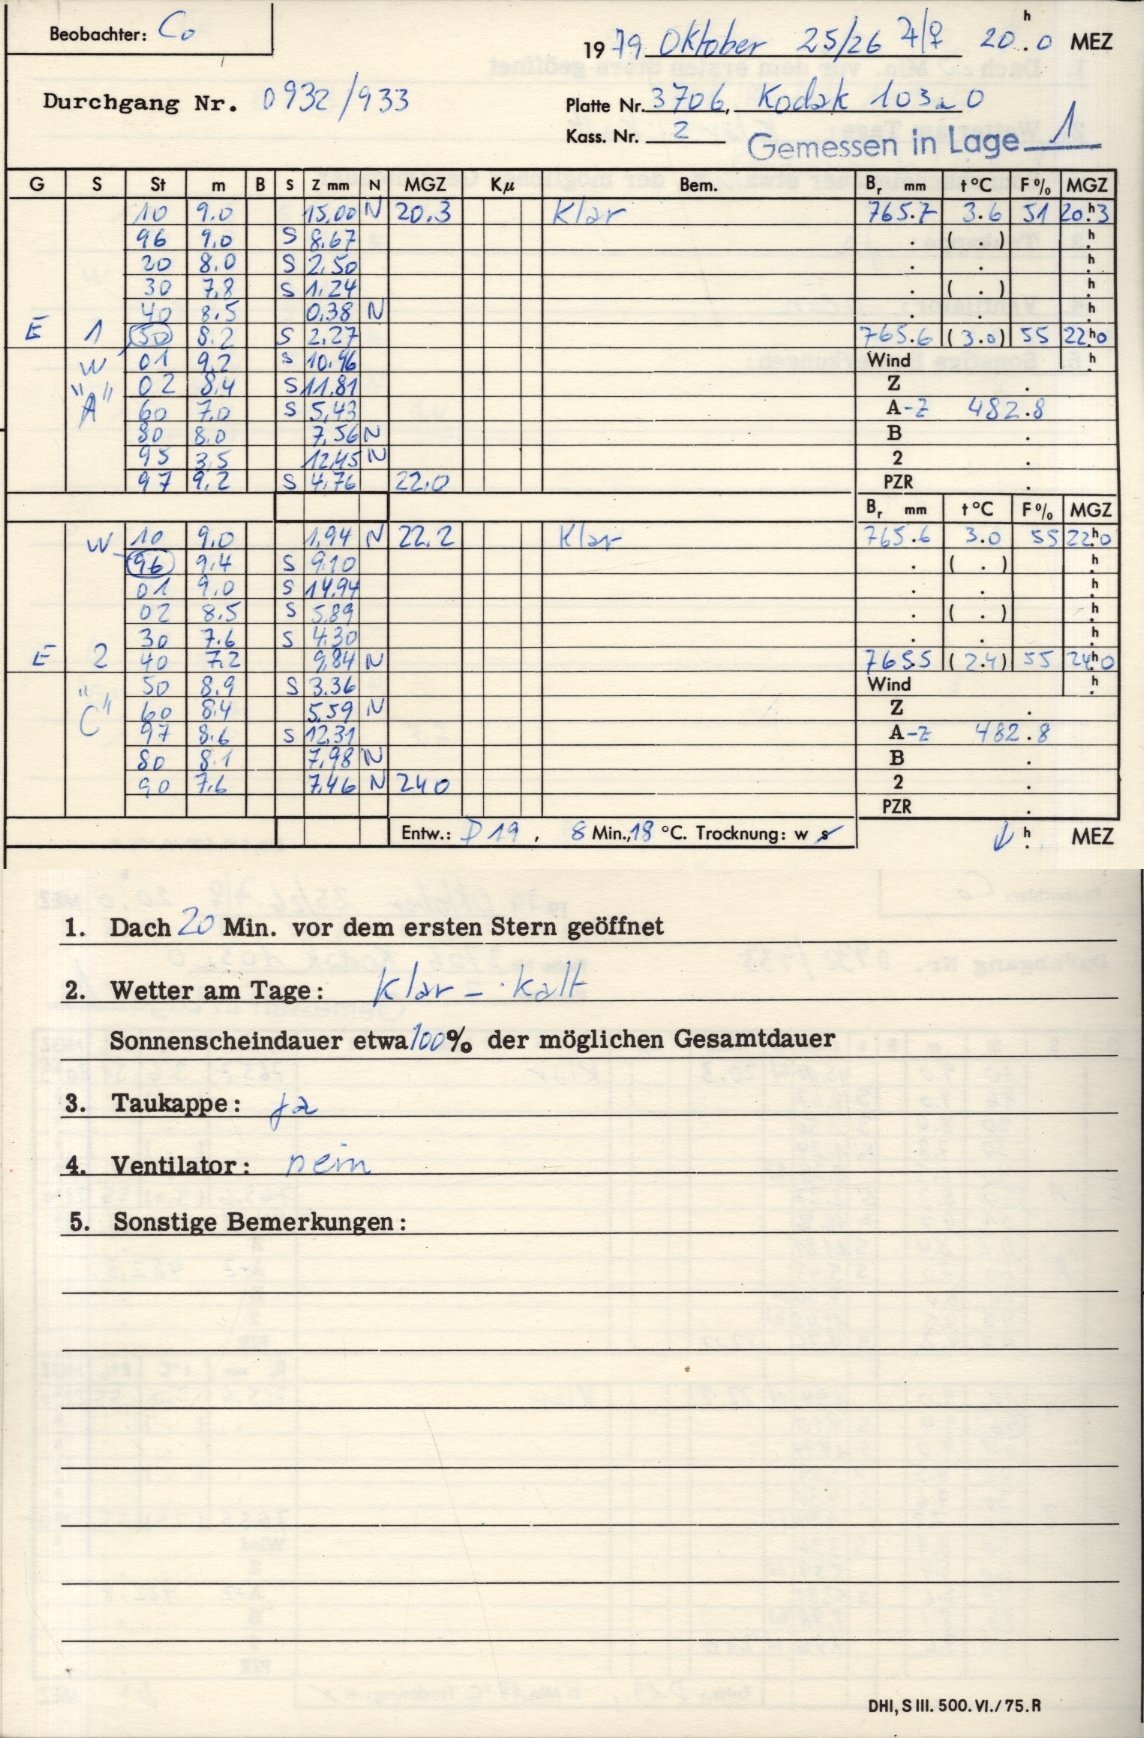 Beobachter: Co
1979 Oktober 25/26 ♃/♀ 20.ʰ0 MEZ
Durchgang Nr. 0932/933
Platte Nr. 3706, Kodak 103a0
Kass. Nr. 2
Gemessen in Lage 1
G S St m B S Z mm N MGZ Kμ Bem. Bᵣ mm t°C F% MGZ
10 9.0 15,00 N 20.3 Klar 765.7 3.6 51 20.ʰ3
96 9.0 S 8.67 . ( . ) h
20 8.0 S 2,50 . . h
30 7,8 S 1.24 . ( . ) h
40 8.5 0,38 N . . h
E 1 50 8.2 S 2.27 765.6 (3.0) 55 22.ʰ0
W 01 9.2 S 10.96 Wind h
"A" 02 8.4 S 11.81 Z .
60 7.0 S 5,43 A-Z 482.8
80 8.0 7,56 N B .
95 3,5 12,45 N 2 .
97 9.2 S 4,76 22.0 PZR .
Bᵣ mm t°C F% MGZ
W 10 9.0 1,94 N 22.2 Klar 765.6 3.0 55 22.ʰ0
96 9.4 S 9.10 . ( . ) h
01 9.0 S 14.94 . . h
02 8.5 S 5,89 . ( . ) h
30 7.6 S 4.30 . . h
E 2 40 7.2 9,84 N 765.5 (2.4) 55 24.ʰ0
"C" 50 8.9 S 3.36 Wind h
60 8.4 5.59 N Z .
97 8.6 S 12.31 A-Z 482.8
80 8.1 7,98 N B .
90 7.6 7,46 N 24.0 2 .
PZR .
Entw.: D 19, 8 Min., 18 °C. Trocknung: w s ↓ h MEZ
1. Dach 20 Min. vor dem ersten Stern geöffnet
2. Wetter am Tage: Klar - kalt
Sonnenscheindauer etwa 100% der möglichen Gesamtdauer
3. Taukappe: ja
4. Ventilator: nein
5. Sonstige Bemerkungen:
DHI, S III. 500. VI./75. R